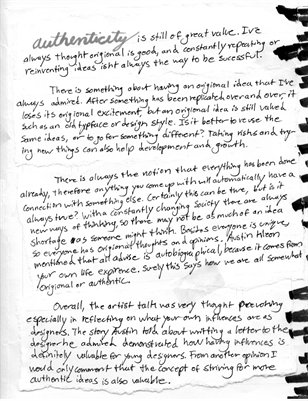 authenticity is still of great value. I've
always thought origional is good, and constantly repeating or
reinventing ideas isnt always the way to be sucessful.
There is something about having an origional idea that I've
always admired. After something has been replicated over and over, it
loses its origional excitement, but an origional idea is still valued
such as an old typface or design style. Is it better to reuse the
same ideas, or to go for something different? Taking risks and try-
ing new things can also help development and growth.
There is always the notion that everything has been done
already, therefore anything you come up with will automatically have a
connection with something else. Certainly this can be true, but is it
always true? With a constantly changing society there are always
new ways of thinking, so there may not be as much of an idea
shortage as someone might think. Besides everyone is unique,
so everyone has origional thoughts and opinions. Austin Kleon
mentioned that all advise is autobiographical, because it comes from
your own life expirence. Surely this says how we are all somewhat
origional or authentic.
Overall, the artist talk was very thought provoking
especially in reflecting on what your own influences are as
designers. The story Austin told about writting a letter to the
designer he admired demonstrated how having influences is
definitely valuable for young designers. From another opinion I
would only comment that the concept of striving for more
authentic ideas is also valuable.